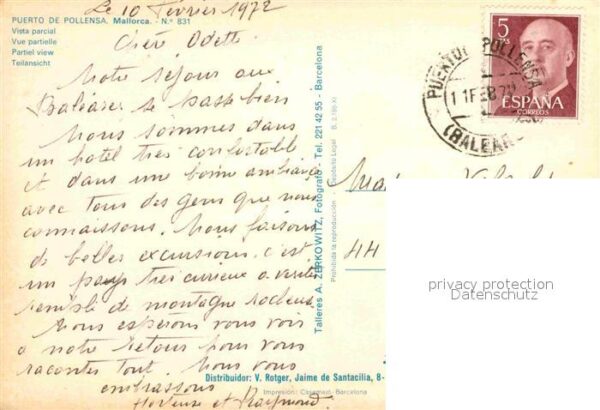 Le 10 Février 1972
PUERTO DE POLLENSA. Mallorca. - N.º 831
Vista parcial
Vue partielle
Partiel view
Teilansicht
Chère Odette
Notre séjour aux
Baléares se passe bien
Nous sommes dans
un hotel très confortable
et dans une bonne ambiance
avec tous des gens que nous
connaissons. Nous faisons
de belles excursions. c'est
un pays très curieux a
rempli de montagne rocheuse
Nous espérons vous voir
a notre retour pour vous
racontes tout. Nous vous
embrassons
Hortense et Raymond.
Talleres A. ZERKOWITZ, Fotógrafo - Tel. 221 42 55 - Barcelona
Prohibida la reproducción - Depósito Legal B. 2.180-XI
Distribuidor: V. Rotger, Jaime de Santacilia, 8-
Impresión: Casamajó - Barcelona
5
PTS
ESPAÑA
CORREOS
PUERTO POLLENSA
11 FEB 72
(BALEARES)
44
privacy protection
Datenschutz